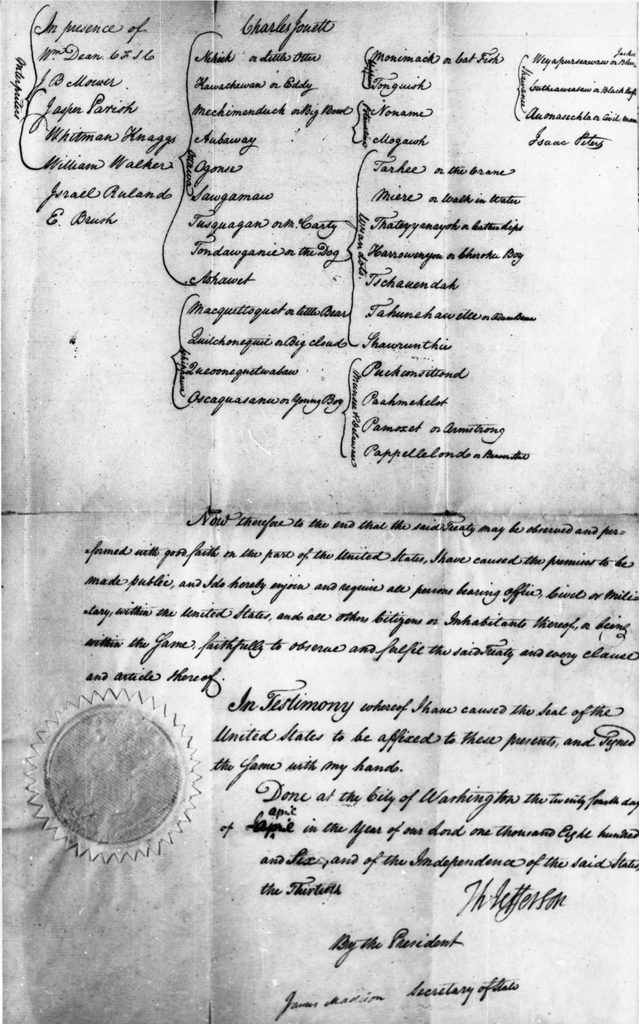 Charles Jouett
In presence of
Wm Dean. C F S C
J B Mower
Jasper Parish
Whitman Knaggs
William Walker
Israel Ruland
E. Brush
Interpreters
Nekick or Little Otter
Kawachewan or Eddy
Mechimenduck or Big Bowl
Aubaway
Ogonse
Sawgamaw
Tusquagan or McCarty
Tondawganie or the Dog
Ashawet
Ottawa
Macquettoquet or little Bear
Quilchonequit or Big cloud
Queoonequetwabaw
Oscaquasanu or Young Boy
Chippewa
Monimack or Cat Fish
Tonguish
Noname
Mogawh
Tarhee or the Crane
Miere or Walk in Water
Thateyyanayoh or Leather lips
Harrowenyou or Cherokee Boy
Tschauendah
Tahunehawettee or Adam Brown
Shawrunthie
Wyandots.
Puckconsittond
Paahmehelot
Pamozet or Armstrong
Pappellelond or Beaver Hat
Munsee & Delaware
Weyapurseawaw or Blue Jacket
Cuthaweasaw or Black Hoff
Auonasechla or Civil man
Isaac Peters
Shawanee
Now therefore to the end that the said Treaty may be observed and per-
formed with good faith on the part of the United States, I have caused the premises to be
made public, and I do hereby enjoin and require all persons bearing office, Civil or Mili
tary, within the United States, and all other Citizens or Inhabitants thereof, or being
within the Same, faithfully to observe and fulfil the said Treaty and every clause
and article thereof.
In Testimony whereof I have caused the seal of the
United States to be affixed to these presents, and Signed
the Same with my hand.
Done at the City of Washington the twenty fourth day
april
of April in the Year of our Lord one thousand Eight hundred
and Six, and of the Independence of the said States,
the Thirtieth
Th Jefferson
By the President
James Madison Secretary of State